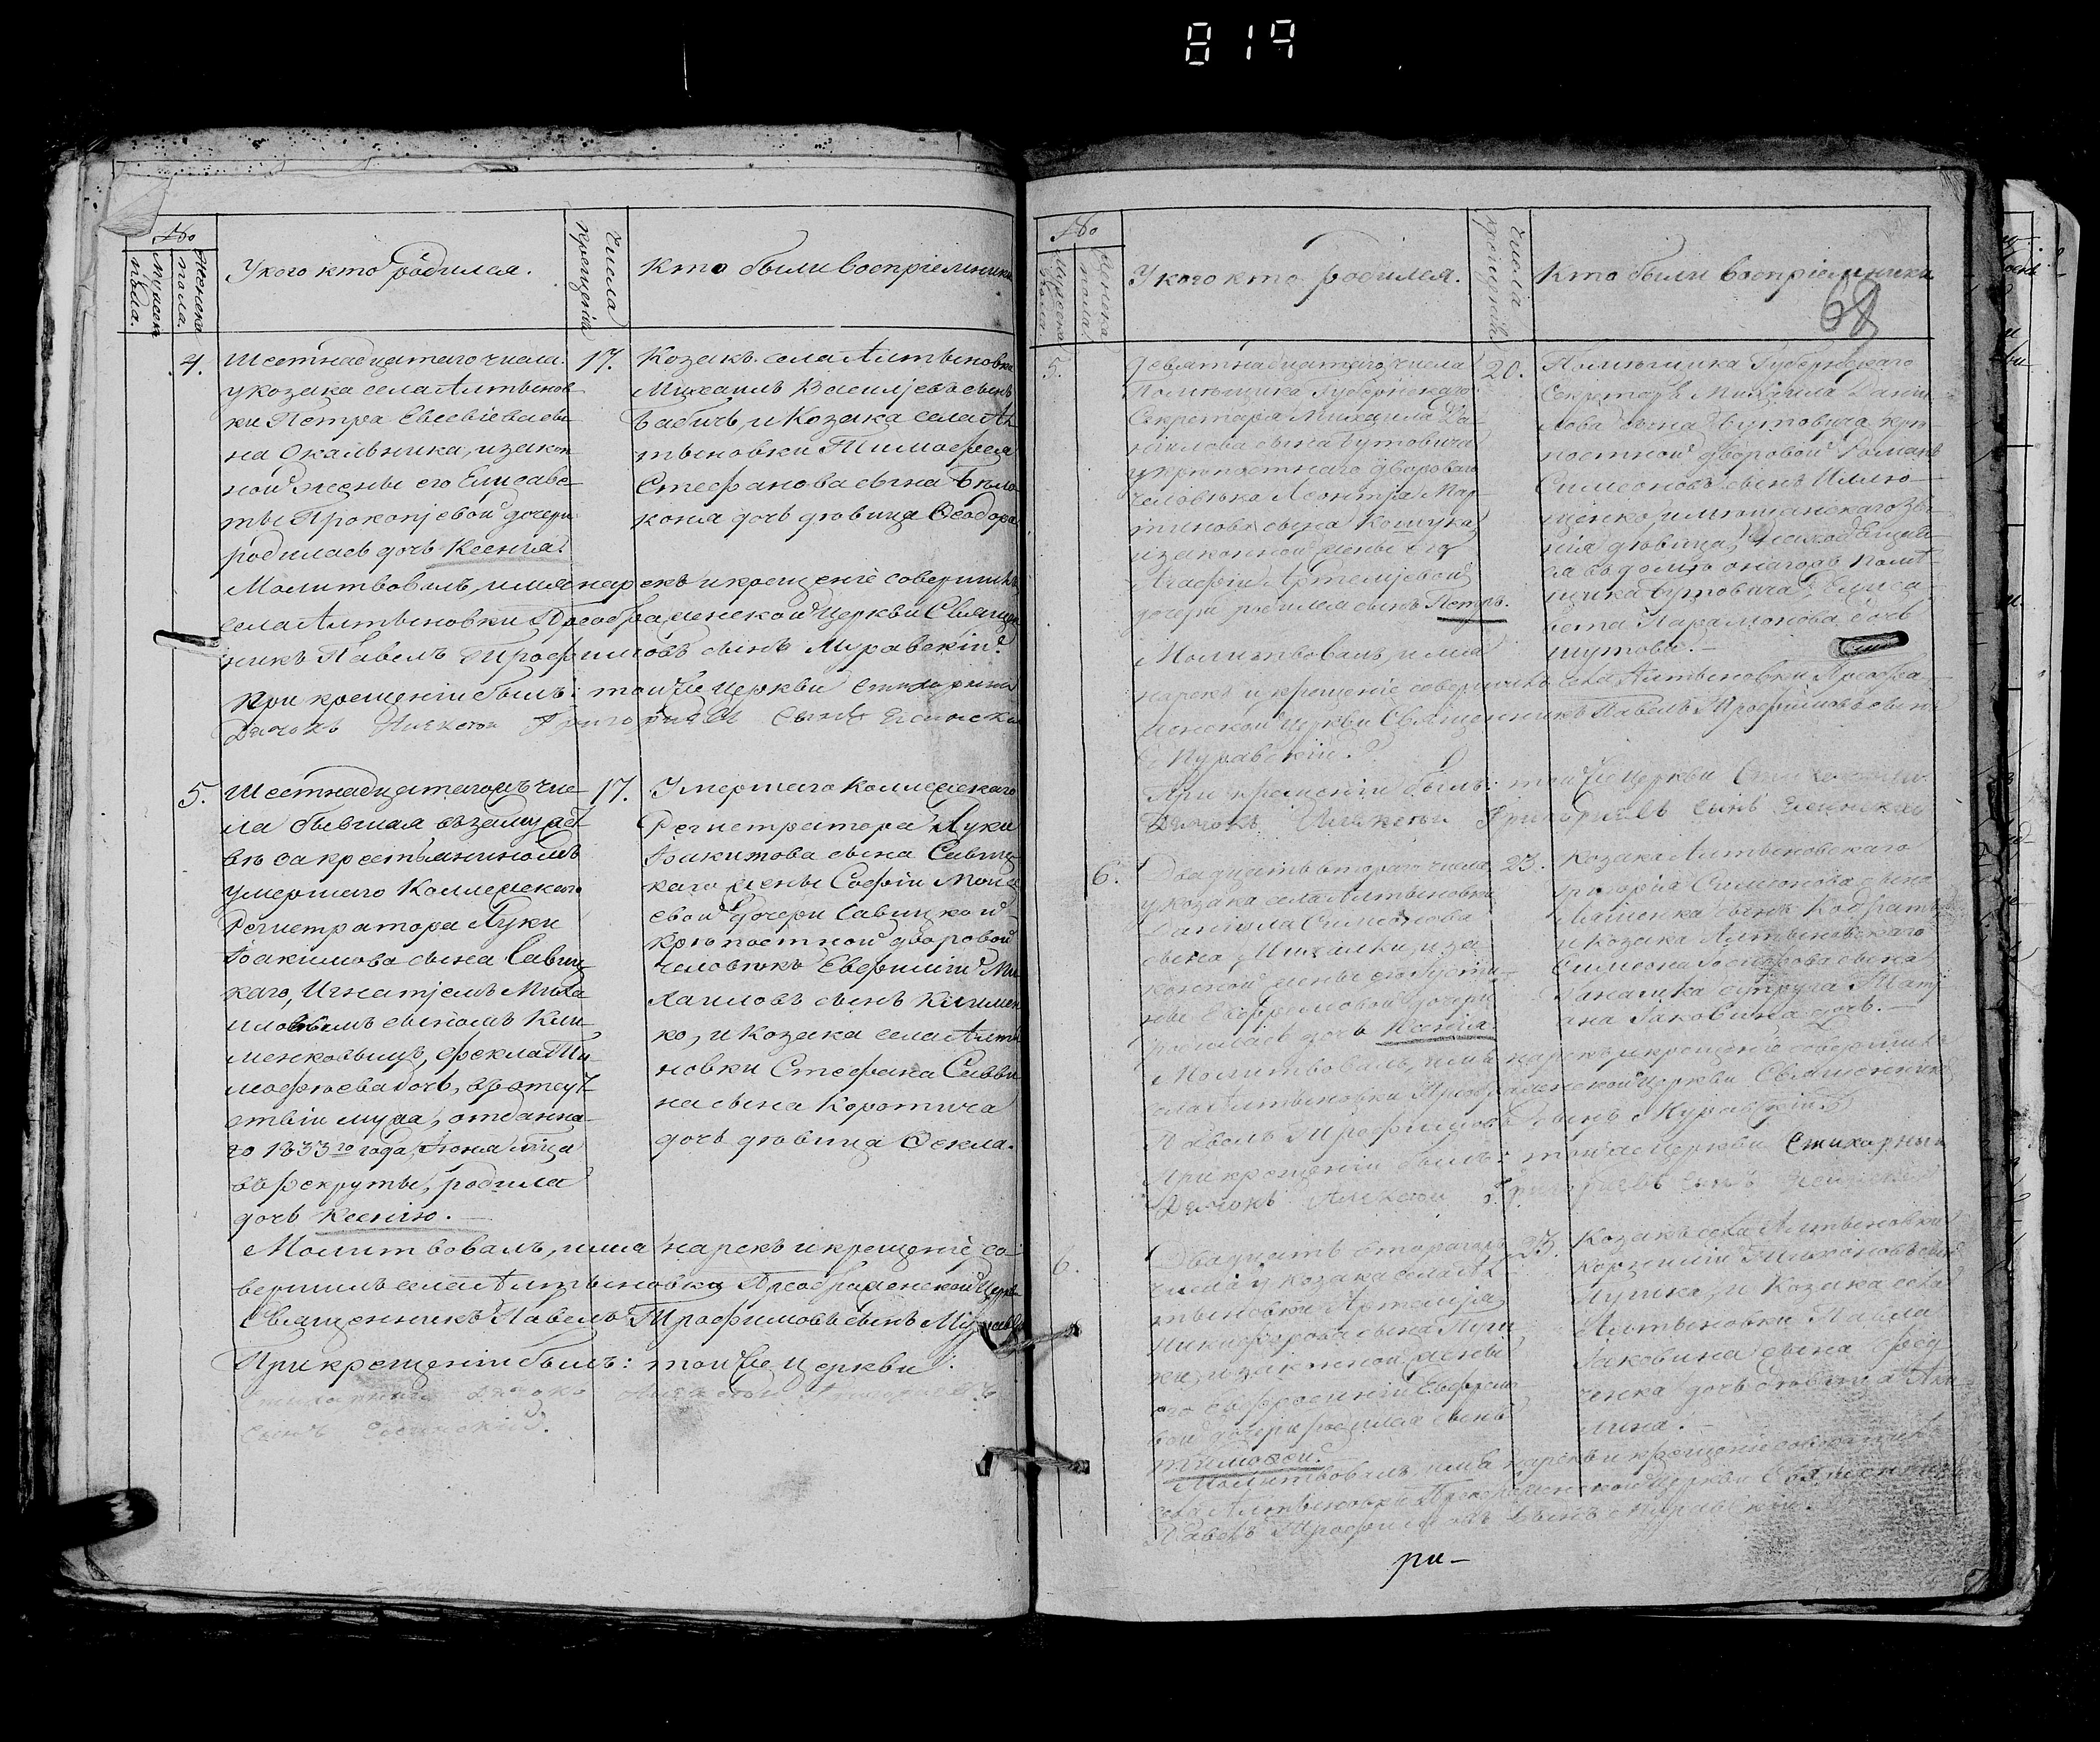 819
№
Мужеска пола.
Женска пола.
У кого кто родился.
Числа крещенія
Кто были воспріемники
4.
Шестнадцатаго числа
у козака села Алтынов
ки Петра Евсевіева сы
на Окальника, и закон
ной жены его Елисаве
ты Прокопіевой дочери
родилась дочь Ксенія.
17.
Козакъ села Алтыновки
Михаилъ Василіевъ сынъ
Бабичь, и Козака села Ал
тыновки Тимофея
Стефанова сына Бѣло
коня дочь дѣвица Ѳеодора
Молитвовалъ, имя нарекъ и крещеніе совершилъ
села Алтыновки Преображенской Церкви Священ
никъ Павелъ Трофимовъ сынъ Муравскій
При крещеніи былъ: той же церкви Стихарный
Дячокъ Алексей Григоріевъ сынъ
5.
Шестнадцатаго чис
ла бывшая въ замужст
вѣ за крестьяниномъ
умершаго Коллежскаго
Регистратора Луки
Іоакимова сына Савиц
каго, Игнатіемъ Миха
иловымъ сыномъ Кли
менко, Фекла Ти
мофѣева дочь, въ отсут
ствіи мужа, отданна
го 1833го года Іюня мѣца
въ рекруты, родила
дочь Ксенію.
17.
Умершаго Коллежскаго
Регистратора Луки
Іоакимова сына Савиц
каго жены Софіи Моисе
евой дочери Савицкой
крѣпостной дворовой
человѣкъ Евфимій Ми
хаиловъ сынъ Климен
ко, и Козака села Алты
новки Стефана Савви
на сына Коротича
дочь дѣвица Ѳекла.
Молитвовалъ, имя нарекъ и крещеніе со
вершилъ села Алтыновки Преображенской Церкви
Священникъ Павелъ Трофимовъ сынъ Муравскій
При крещеніи былъ: той же церкви
Стихарный Дячокъ Алексей Григоріевъ
сынъ
№
Мужеска пола.
Женска пола
У кого кто родился.
Числа крещенія
Кто были воспріемники
68
5.
Девятнадцатаго числа
Помѣщика Губернскаго
Секретаря Михаила Да
ніилова сына Бутовича
у крѣпостнаго двороваго
человѣка Леонтія Мар
тинова сына Кошука
и законной жены его
Агафіи Артеміевой
дочери родился сынъ Петръ.
20.
Помѣщика Губернскаго
Секретаря Михаила Дані
лова сына Бутовича крѣ
постной дворовой Романъ
Симеоновъ сынъ
щенко, и мѣщанскаго зва
нія дѣвица,
въ домѣ онаго помѣ
щика Бутовича, Елиса
вета Парамонова дочь
Шутова.
Молитвовалъ, имя
нарекъ и крещеніе совершилъ села Алтыновки Преобра
женской Церкви Священникъ Павелъ Трофимовъ сынъ
Муравскій.
При крещеніи былъ: той же церкви Стихарный
Дячокъ Алексей Григоріевъ сынъ
6.
Двадцать втораго числа
у козака села Алтыновки
Даніила Симеонова
сына Михалки, и за
конной жены его Іусти
ны Евфремовой дочери
родилась дочь Ксенія.
23.
Козака Алтыновскаго
Григорія Симеонова сына
сынъ Кондратъ
и Козака Алтыновскаго
Симеона сына
супруга Тати
ана Іаковина дочь.
Молитвовалъ, имя нарекъ и крещеніе совершилъ
села Алтыновки Преображенской Церкви Священникъ
Павелъ Трофимовъ сынъ Муравскій
При крещеніи былъ: той же Церкви Стихарный
Дячокъ Алексей Григоріевъ сынъ
6.
Двадцать втораго
числа у козака села Ал
тыновки Артемія
Никифорова сына
и законной жены
его Евфросиніи Евфремо
вой дочери родился сынъ
Тимофей.
23.
Козакъ села Алтыновки
Корнилій Тихоновъ сынъ
и Козака села
Алтыновки Павла
Іаковина сына
ченка дочь дѣвица Аки
лина.
Молитвовалъ, имя нарекъ и крещеніе совершилъ
села Алтыновки Преображенской Церкви Священникъ
Павелъ Трофимовъ сынъ Муравскій.
ри-